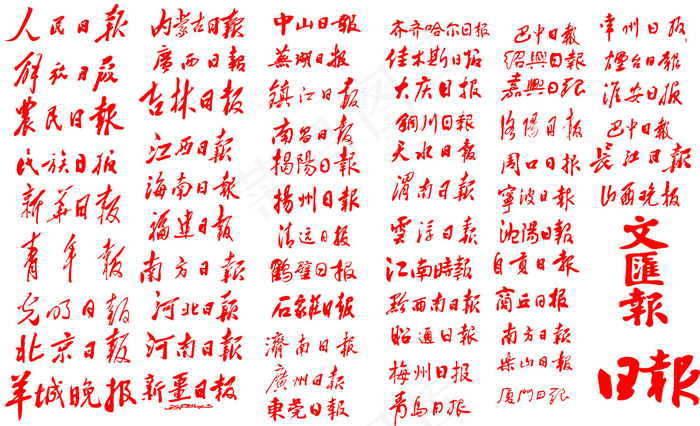 人民日報
解放日報
農民日報
民族日报
新華日報
青年報
光明日報
北京日報
羊城晚报
内蒙古日報
廣西日報
吉林日报
江西日報
海南日報
福建日報
南方日報
河北日報
河南日報
新疆日报
中山日報
蕪湖日报
鎮江日報
南昌日報
揭陽日報
揚州日報
清远日报
鶴壁日报
石家莊日報
濟南日报
廣州日報
東莞日報
齐齐哈尔日报
佳木斯日报
大庆日报
銅川日報
天水日報
渭南日報
雲浮日報
江南時報
黔西南日報
昭通日報
梅州日报
青岛日报
巴中日報
绍興日報
嘉興日报
洛陽日報
周口日报
寧波日報
沈陽日報
自貢日报
商丘日报
南方日報
乐山日報
厦门日报
常州日报
煙台日報
淮安日报
巴中日報
長江日報
山西晚报
文
匯
報
日報